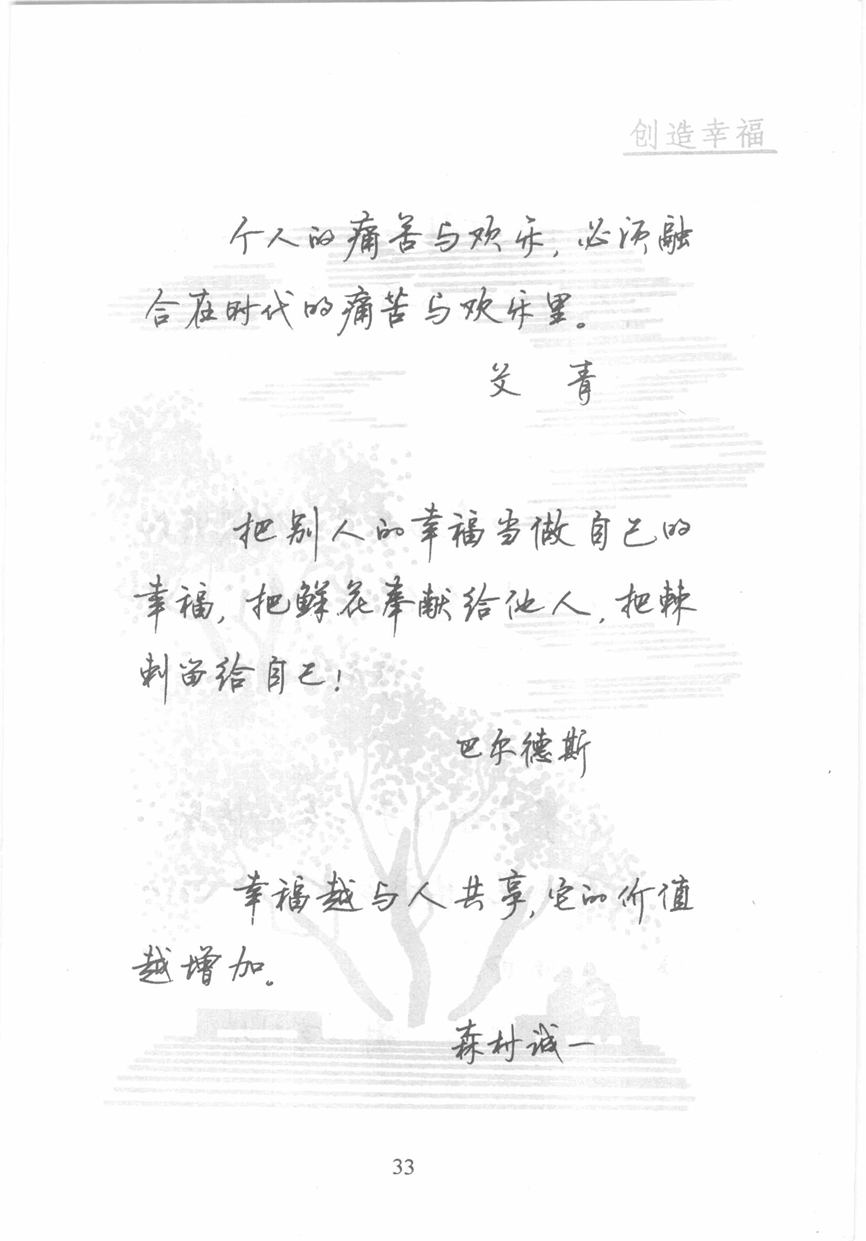 创造幸福
个人的痛苦与欢乐，必须融
合在时代的痛苦与欢乐里。
艾 青
把别人的幸福当做自己的
幸福，把鲜花奉献给他人，把棘
刺留给自己！
巴尔德斯
幸福越与人共享，它的价值
越增加。
森村诚一
33